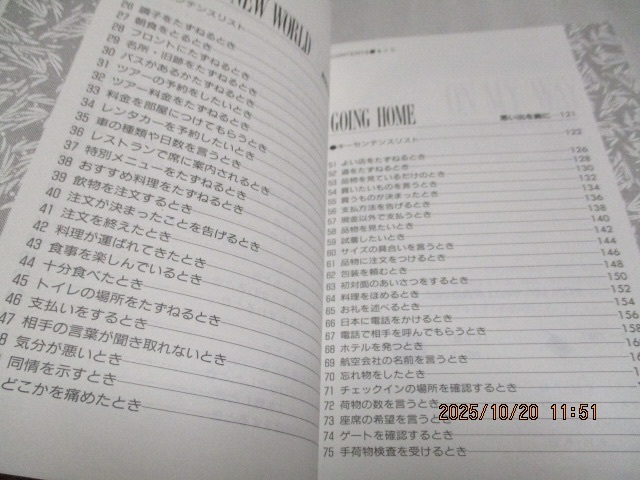 NEW WORLD
26 調子をたずねるとき
27 朝食をとるとき
28 フロントにたずねるとき
30 名所・旧跡をたずねるとき
31 バスがあるかたずねるとき
32 ツアーの予約をしたいとき
33 ツアー料金をたずねるとき
34 料金を部屋につけてもらうとき
35 レンタカーを予約したいとき
36 車の種類や日数を言うとき
37 レストランで席に案内されるとき
38 特別メニューをたずねるとき
39 おすすめ料理をたずねるとき
40 飲物を注文するとき
41 注文が決まったことを告げるとき
42 注文を終えたとき
43 料理が運ばれてきたとき
44 食事を楽しんでいるとき
45 十分食べたとき
46 トイレの場所をたずねるとき
47 支払いをするとき
相手の言葉が聞き取れないとき
気分が悪いとき
同情を示すとき
どこかを痛めたとき
GOING HOME
思い出を胸に 121
●キーセンテンスリスト 122
51 よい店をたずねるとき 126
52 道をたずねるとき 128
53 品物を見ているだけのとき 130
54 買いたいものを言うとき 132
55 買うものが決まったとき 134
56 支払方法を告げるとき 136
57 現金以外で支払うとき 138
58 品物を見たいとき 140
59 試着したいとき 142
60 サイズの具合いを言うとき 144
61 品物に注文をつけるとき 146
62 包装を頼むとき 148
63 初対面のあいさつをするとき 150
64 料理をほめるとき 152
65 お礼を述べるとき 154
66 日本に電話をかけるとき 156
67 電話で相手を呼んでもらうとき
68 ホテルを発つとき
69 航空会社の名前を言うとき
70 忘れ物をしたとき
71 チェックインの場所を確認するとき
72 荷物の数を言うとき
73 座席の希望を言うとき
74 ゲートを確認するとき
75 手荷物検査を受けるとき
2025/10/20 11:51